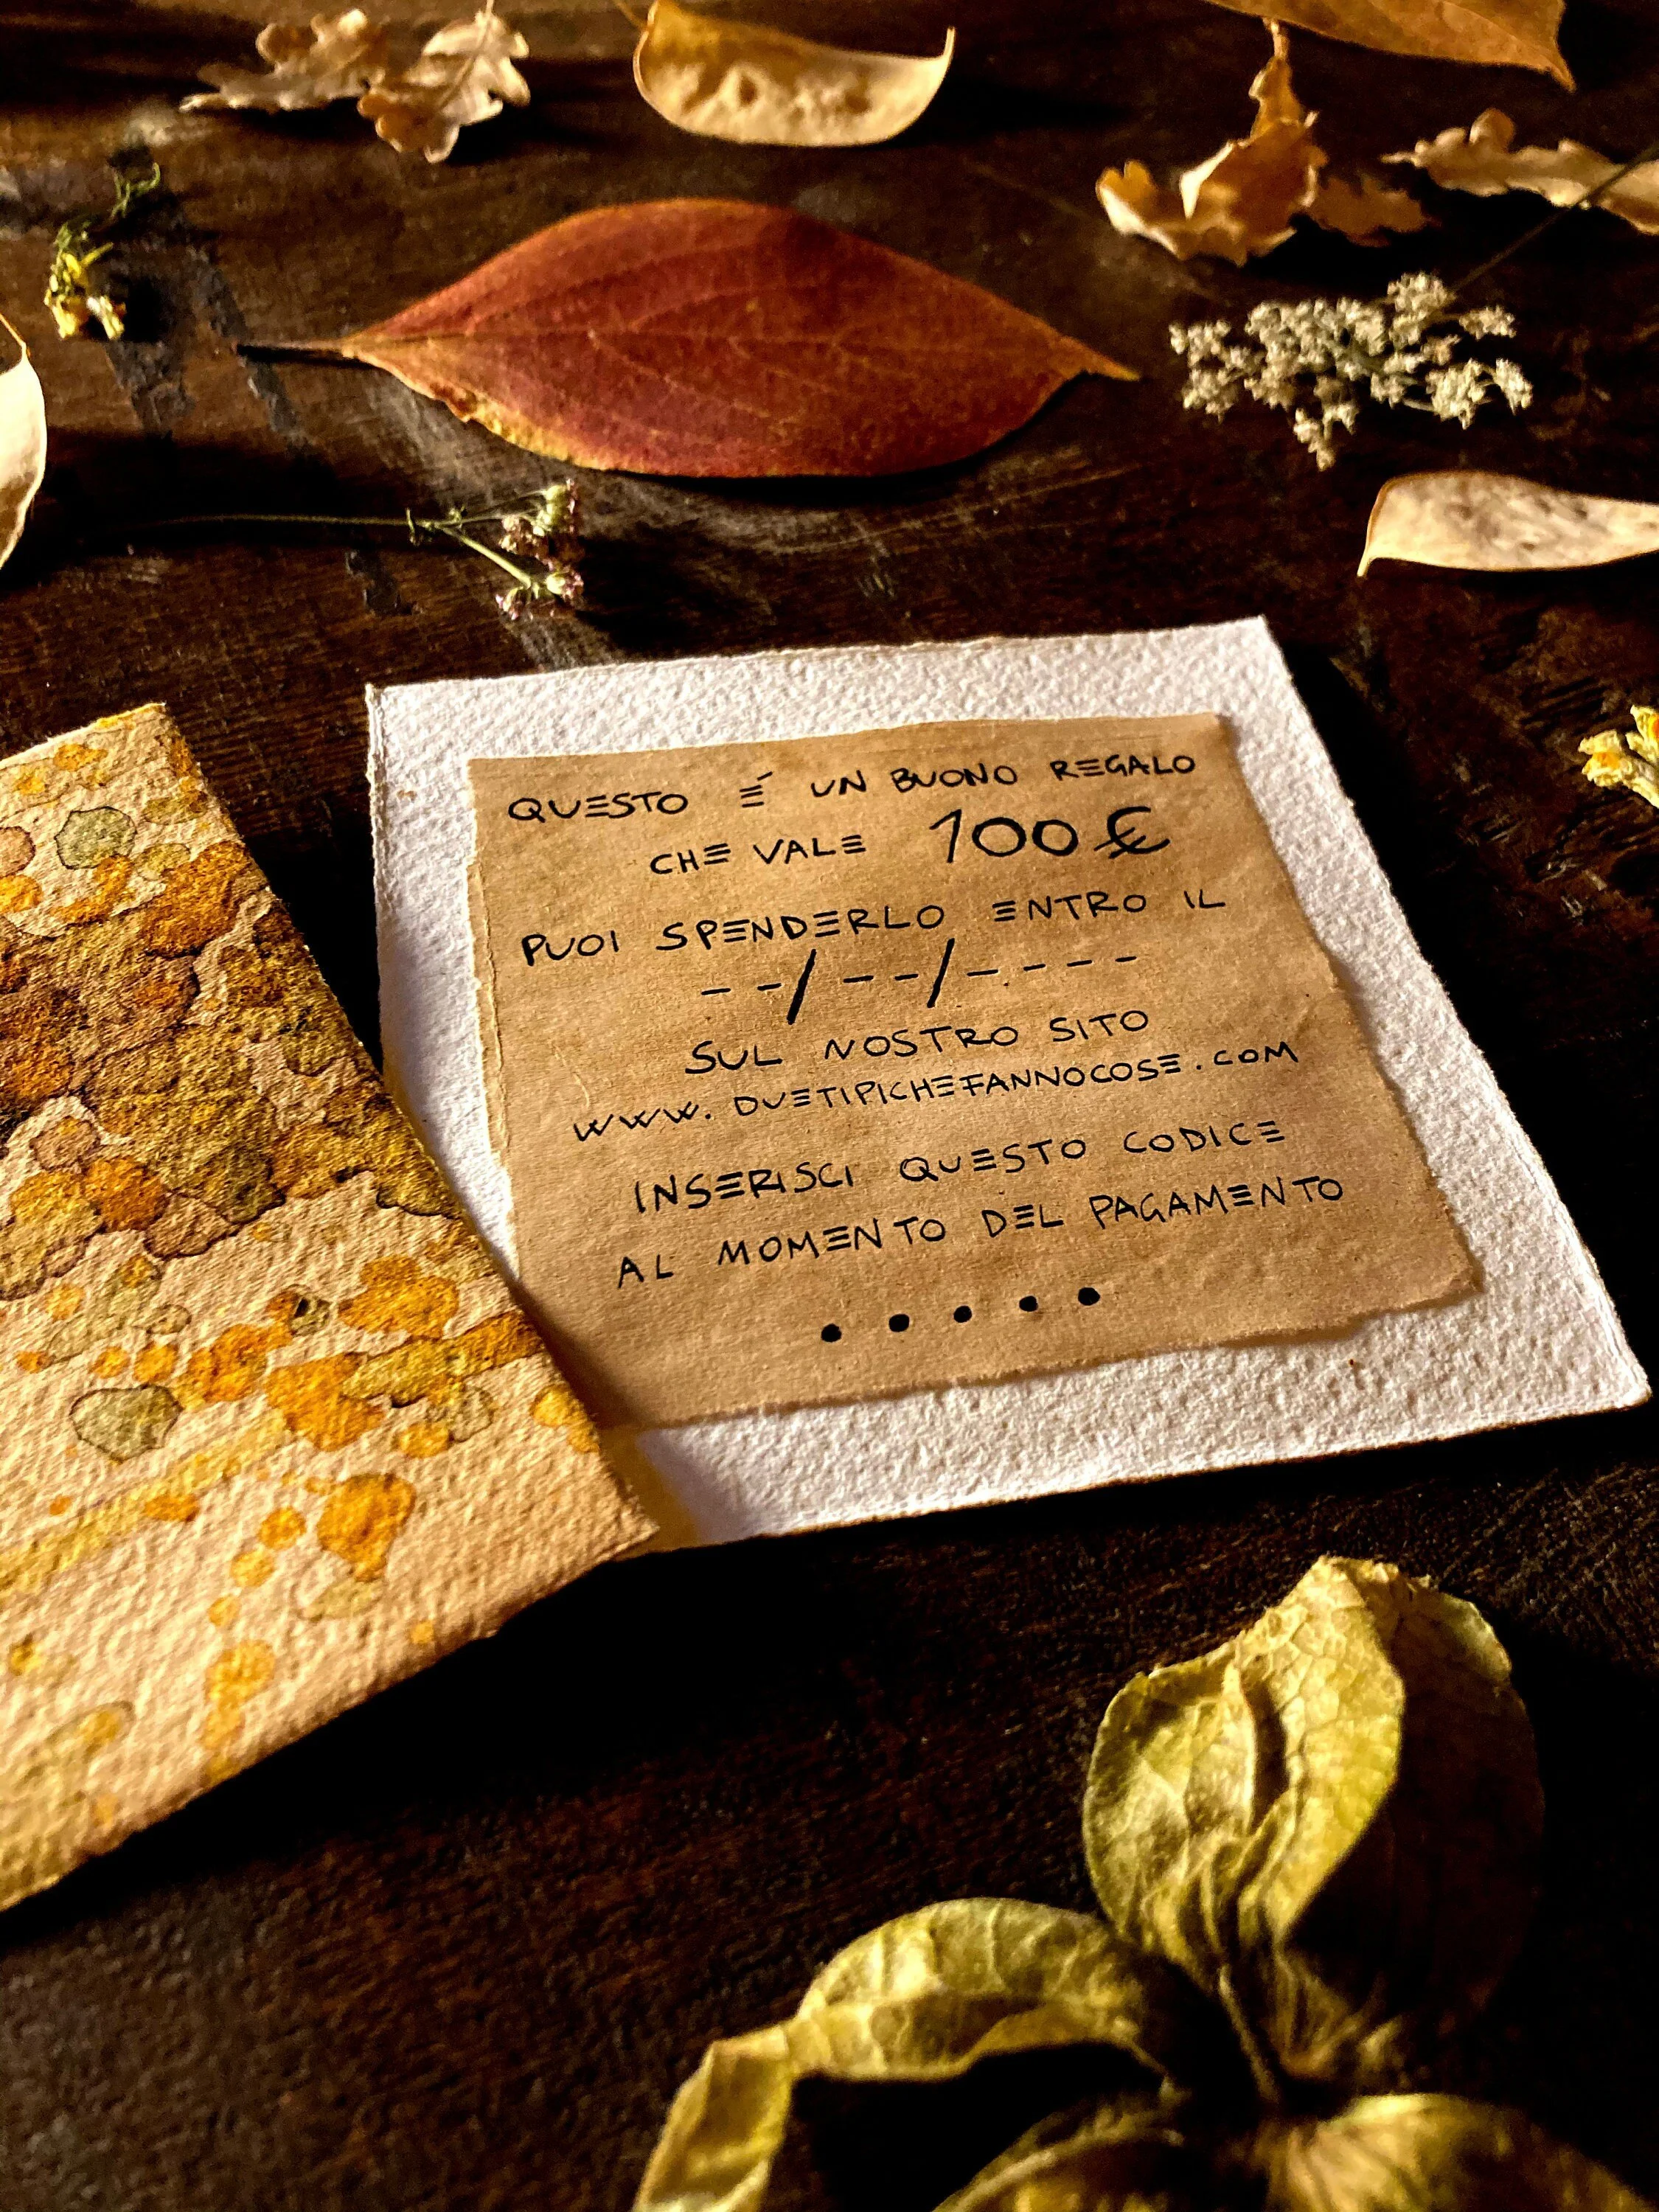 QUESTO É UN BUONO REGALO
CHE VALE 100 €
PUOI SPENDERLO ENTRO IL
--/--/----
SUL NOSTRO SITO
WWW.DUETIPICHEFANNOCOSE.COM
INSERISCI QUESTO CODICE
AL MOMENTO DEL PAGAMENTO
• • • • •